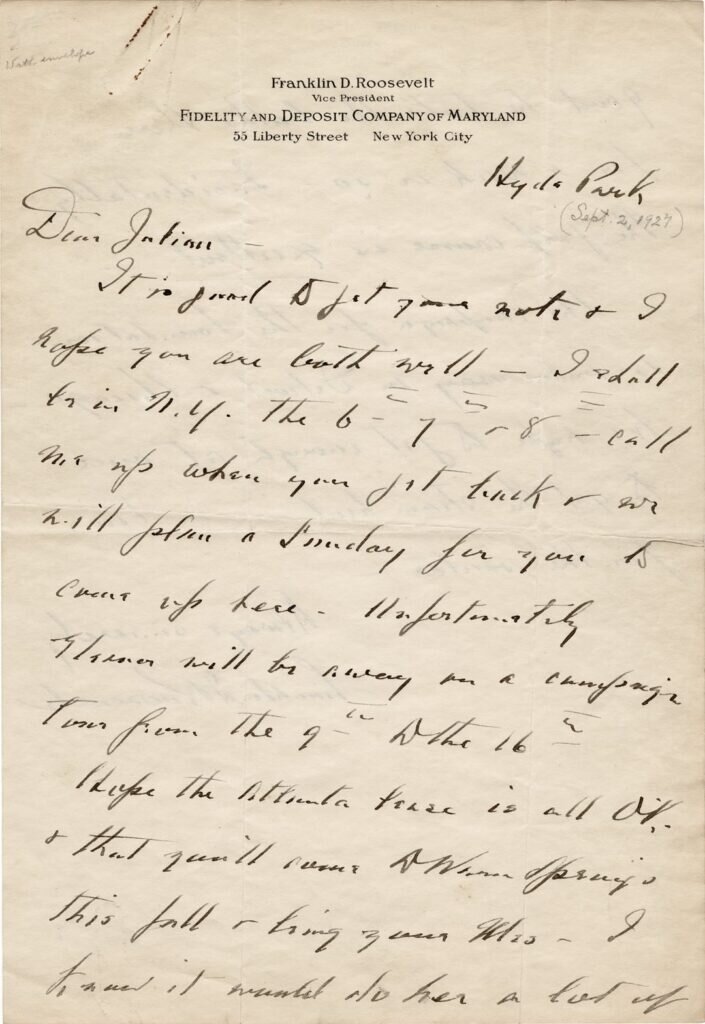 With envelope
Franklin D. Roosevelt
Vice President
Fidelity and Deposit Company of Maryland
55 Liberty Street New York City
Hyde Park
(Sept. 2, 1927)
Dear Julian –
It is good to get your note & I
hope you are both well – I shall
be in N.Y. the 6th 7th & 8th – call
me up when you get back & we
will plan a Sunday for you to
come up here – Unfortunately
Eleanor will be away on a campaign
tour from the 9th to the 16th
Hope the Atlanta lease is all O.K.
& that you'll come to Warm Springs
this fall & bring your Mrs – I
know it would do her a lot of